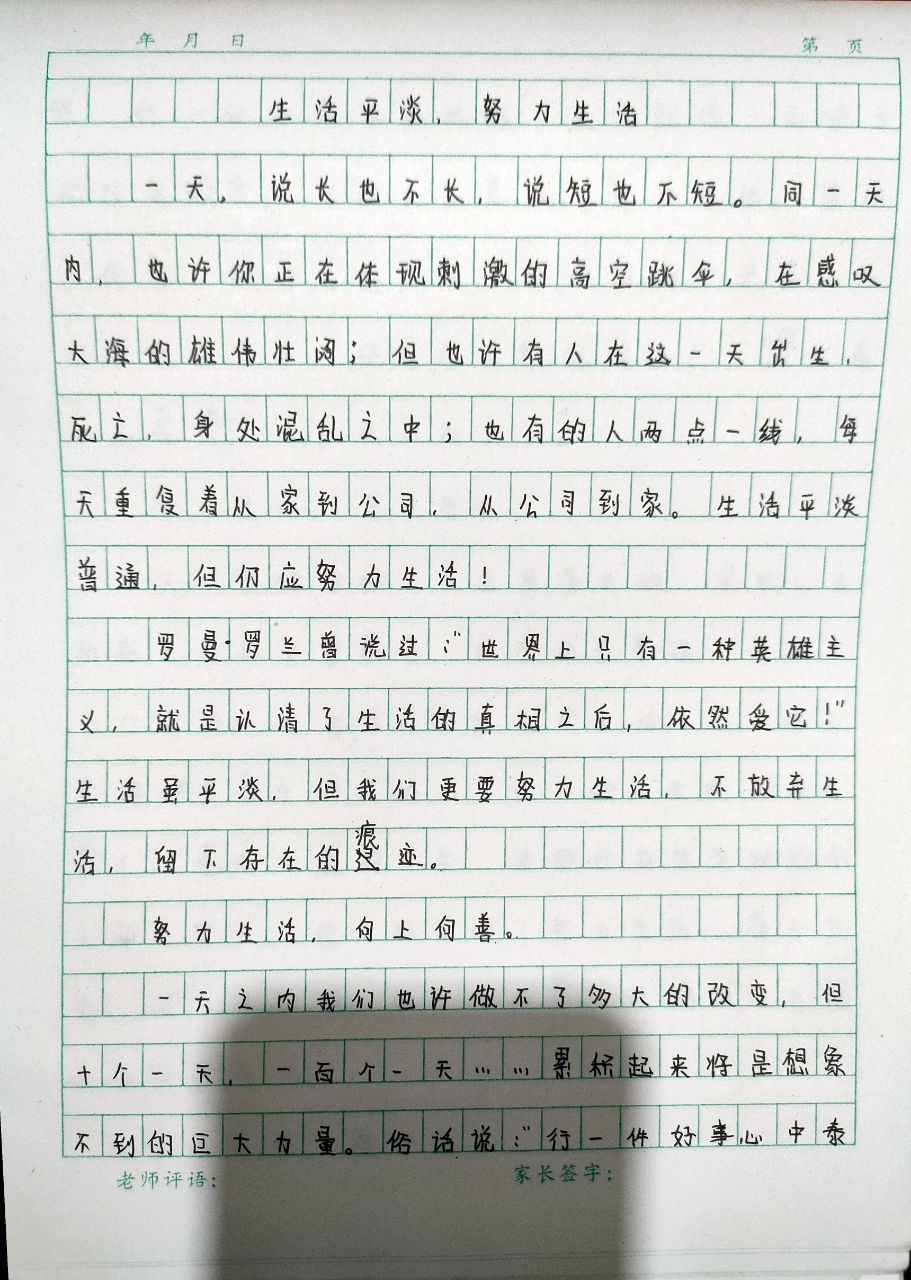 年 月 日 第 页
生活平淡，努力生活
一天，说长也不长，说短也不短。同一天
内，也许你正在体现刺激的高空跳伞，在感叹
大海的雄伟壮阔；但也许有人在这一天出生、
死亡，身处混乱之中；也有的人两点一线，每
天重复着从家到公司，从公司到家。生活平淡
普通，但仍应努力生活！
罗曼·罗兰曾说过：“世界上只有一种英雄主
义，就是认清了生活的真相之后，依然爱它！”
生活虽平淡，但我们更要努力生活，不放弃生
活，留下存在的痕迹。
努力生活，向上向善。
一天之内我们也许做不了多大的改变，但
十个一天，一百个一天……累积起来将是想象
不到的巨大力量。俗话说：“行一件好事心中泰
老师评语： 家长签字：